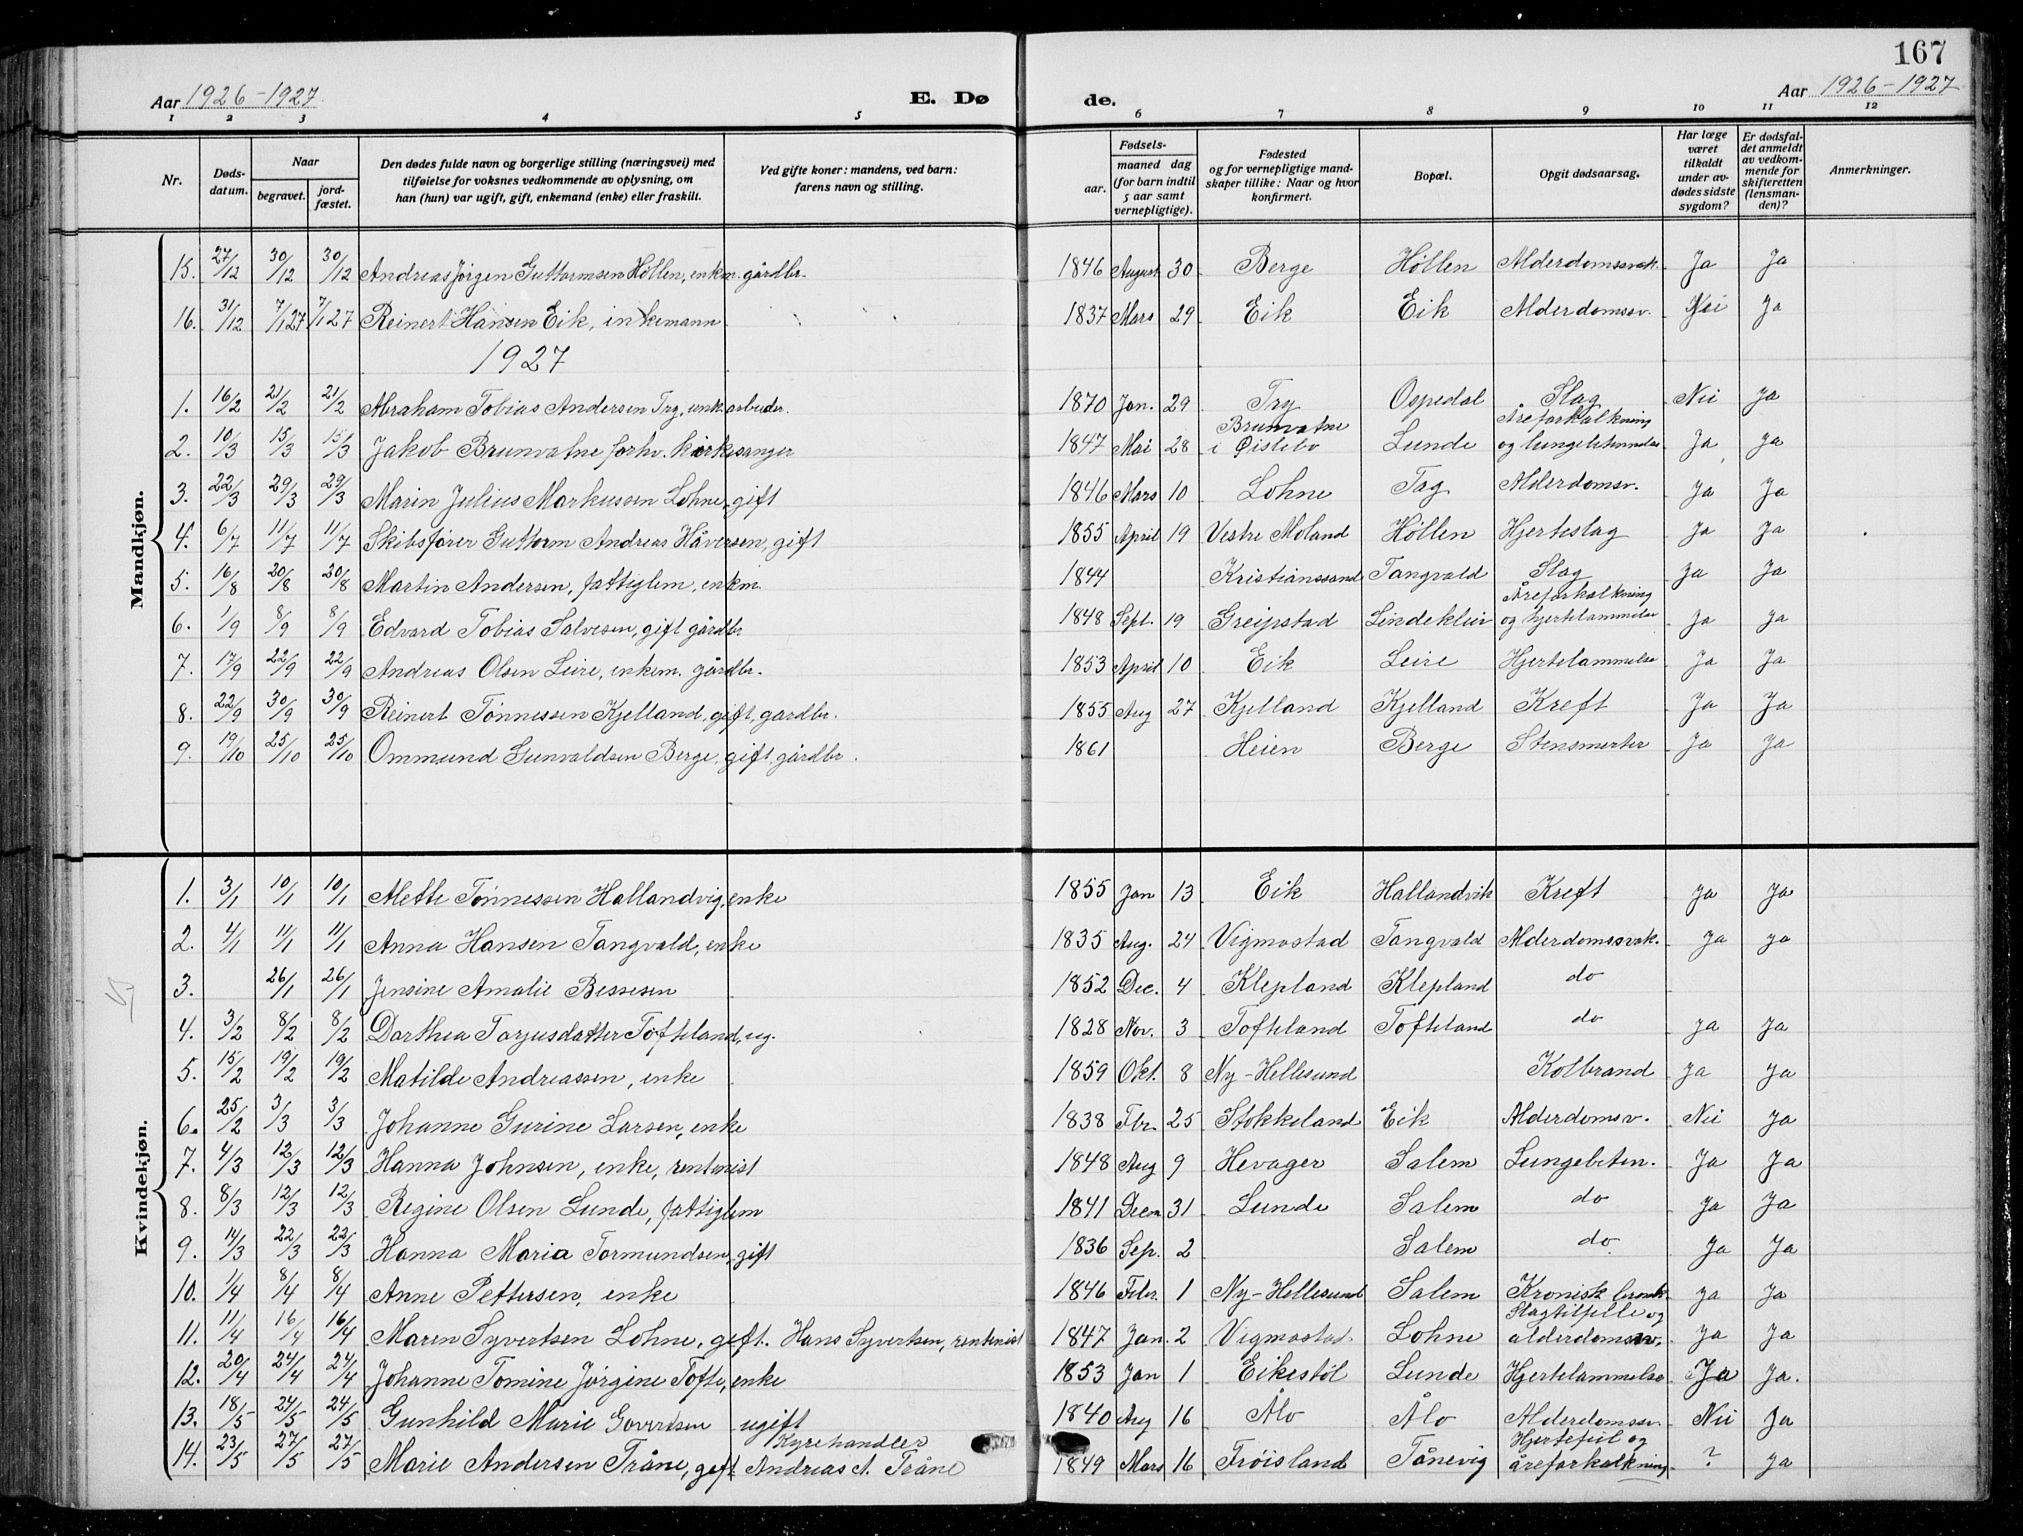 167
Aar 1926-1927. E. Dø de. Aar 1926-1927
1 2 3 4 5 6 7 8 9 10 11 12
Nr. Døds-datum. Naar begravet. jord-fæstet. Den dødes fulde navn og borgerlige stilling (næringsvei) med tilføielse for voksnes vedkommende av oplysning, om han (hun) var ugift, gift, enkemand (enke) eller fraskilt. Ved gifte koner: mandens, ved barn: farens navn og stilling. Fødsels- aar. maaned dag (for barn indtil 5 aar samt vernepligtige). Fødested og for vernepligtige mand-skaper tillike: Naar og hvor konfirmert. Bopæl. Opgit dødsaarsag. Har læge været tilkaldt under av-dødes sidste sygdom? Er dødsfal-det anmeldt av vedkom-mende for skifteretten (lensman-den)? Anmerkninger.
Mandkjøn.
15. 27/12 30/12 30/12 Andreas Jørgen Guttormsen Höllen, enkm. gårdbr. 1846 August 30 Berge Höllen Alderdomssvak. Ja Ja
16. 31/12 7/1 27 7/1 27 Reinert Hansen Eik, inkemann 1837 Mars 29 Eik Eik Alderdomssv. Nei Ja
1927
1. 16/2 21/2 21/2 Abraham Tobias Andersen Try, enk. arbeider. 1870 Jan. 29 Try Ospedal Slag Nei Ja
2. 10/3 15/3 15/3 Jakob Brunvatne forhv. kirkesanger 1847 Mai 28 Brunvatne i Øislebo Lunde Åreforkalkning og lungebetennelse Ja Ja
3. 22/3 29/3 29/3 Marin Julius Markussen Lohne, gift 1846 Mars 10 Lohne Tag Alderdomsv. Ja Ja
4. 6/7 11/7 11/7 Skibsfører Guttorm Andreas Håversen, gift 1855 April 19 Vestre Moland Höllen Hjerteslag Ja Ja
5. 16/8 20/8 20/8 Martin Andersen, fattiglem, enkm. 1844 Kristianssand Tangvald Slag Ja Ja
6. 1/9 8/9 8/9 Edvard Tobias Salvesen, gift gårdbr 1848 Sept. 19 Greipstad Lindekleiv Åreforkalkning og hjertelammelse Ja Ja
7. 17/9 22/9 22/9 Andreas Olsen Leire, enkem. gårdbr. 1853 April 10 Eik Leire Hjertelammelse Ja Ja
8. 22/9 30/9 30/9 Reinert Tönnessen Kjelland, gift, gardbr. 1855 Aug 27 Kjelland Kjelland Kreft Ja Ja
9. 19/10 25/10 25/10 Ommund Gunvaldsen Berge, gift, gårdbr. 1861 Heien Berge Stensmerter Ja Ja
Kvindekjøn.
1. 3/1 10/1 10/1 Mette Tönnessen Hallandvig, enke 1855 Jan 13 Eik Hallandvik Kreft Ja Ja
2. 4/1 11/1 11/1 Anna Hansen Tangvald, enke 1835 Aug. 24 Vigmostad Tangvald Alderdomssvak. Ja Ja
3. 26/1 26/1 Jensine Amalie Bessesen 1852 Dec. 4 Klepland Klepland do
4. 3/2 8/2 8/2 Dorthea Torjusdatter Tofteland, ug. 1828 Nov. 3 Tofteland Tofteland do Ja Ja
5. 15/2 19/2 19/2 Matilde Andreassen, enke 1859 Okt. 8 Ny-Hellesund Kolbrand Ja Ja
6. 25/2 3/3 3/3 Johanne Gurine Larsen, enke 1838 Fbr. 25 Stokkeland Eik Alderdomsv. Nei Ja
7. 4/3 12/3 12/3 Hanna Johnsen, enke, rentenist 1848 Aug 9 Hevager Salem Lungebeten. Ja Ja
8. 8/3 12/3 12/3 Regine Olsen Lunde, fattiglem 1841 Decm 31 Lunde Salem do Ja Ja
9. 14/3 22/3 22/3 Hanna Maria Tormundsen, gift 1836 Sep. 2 Salem do. Ja Ja
10. 1/4 8/4 8/4 Anne Pettersen, enke 1846 Febr. 1 Ny-Hellesund Salem Kronisk bronk. Ja Ja
11. 11/4 16/4 16/4 Maren Syvertsen Lohne, gift. Hans Syvertsen, rentenist 1847 Jan. 2 Vigmostad Lohne Slagtilfelle og alderdomssv. Ja Ja
12. 20/4 24/4 24/4 Johanne Tomine Jörgine Tofte, enke 1853 Jan 1 Eikestöl Lunde Hjertelammelse Ja Ja.
13. 18/5 24/5 24/5 Gunhild Marie Govertsen ugift 1840 Aug 16 Ålo Ålo Alderdomssv. Nei Ja
14. 23/5 27/5 27/5 Marie Andersen Tråne, gift Kyrehandler Andreas A. Tråne 1849 Mars 16 Fröisland Tånevig Hjertefeil og åreforkalkning ? Ja